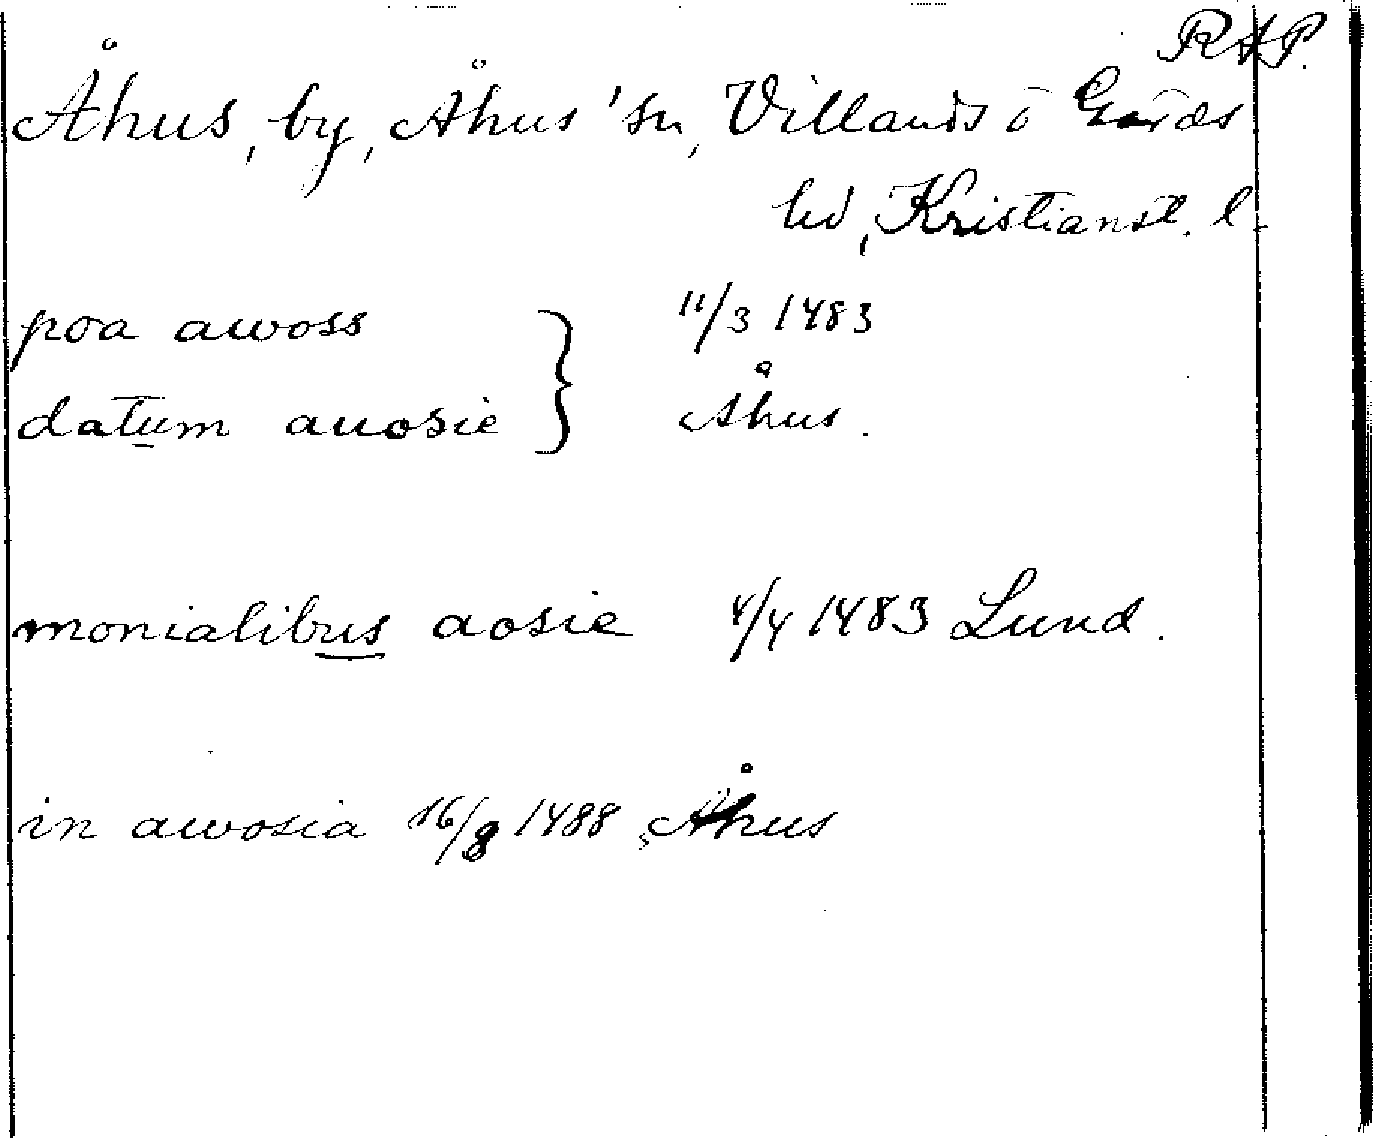 RAP.
Åhus, by, Åhus sn, Villands o Gärds
hd, Kristianst. l.
poa awoss 11/3 1483
datum auosie } Åhus.
monialibus aosie 4/4 1483 Lund.
in awosia 16/8 1488, Åhus